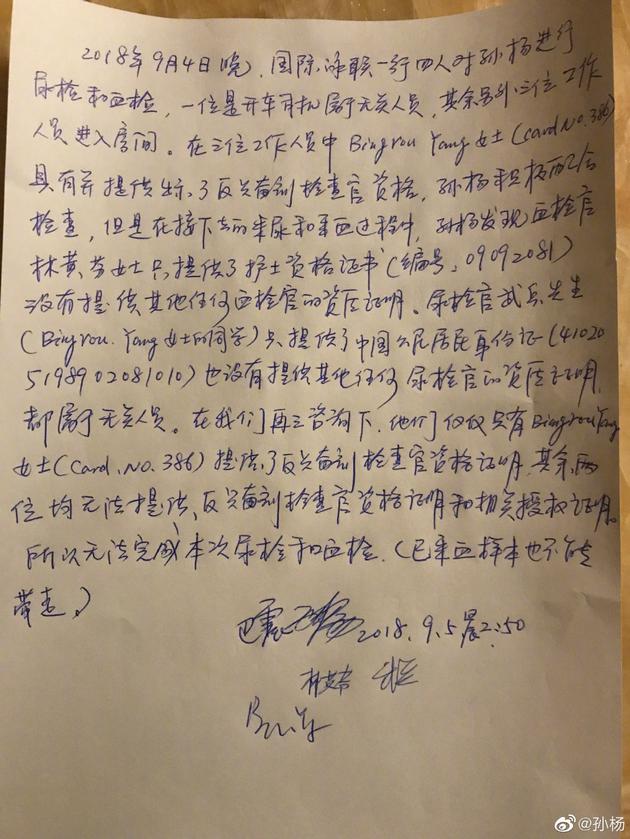 2018年9月4日晚，国际泳联一行四人对孙杨进行
尿检和血检，一位是开车司机属于无关人员，其余另外三位工作
人员进入房间。在三位工作人员中 Bingrou Yang女士(card No. 386)
具有并提供出示了反兴奋剂检查官资格，孙杨积极配合
检查，但是在接下去的采尿和采血过程中，孙杨发现血检官
林黄芬女士只提供了护士资格证书(编号：09092081)
没有提供其他任何血检官的资质证明。尿检官武兵先生
(Bingrou. Yang女士的同学)只提供了中国公民居民身份证(41020
5198902081010)也没有提供其他任何尿检官的资质证明，
都属于无关人员。在我们再三咨询下，他们仅仅只有Bingrou Yang
女士(Card. No. 386)提供了反兴奋剂检查官资格证明，其余两
位均无法提供反兴奋剂检查官资格证明和相关授权证明。
所以无法完成本次尿检和血检.(已采血样本也不能
带走。)
2018.9.5晨2:50
@孙杨